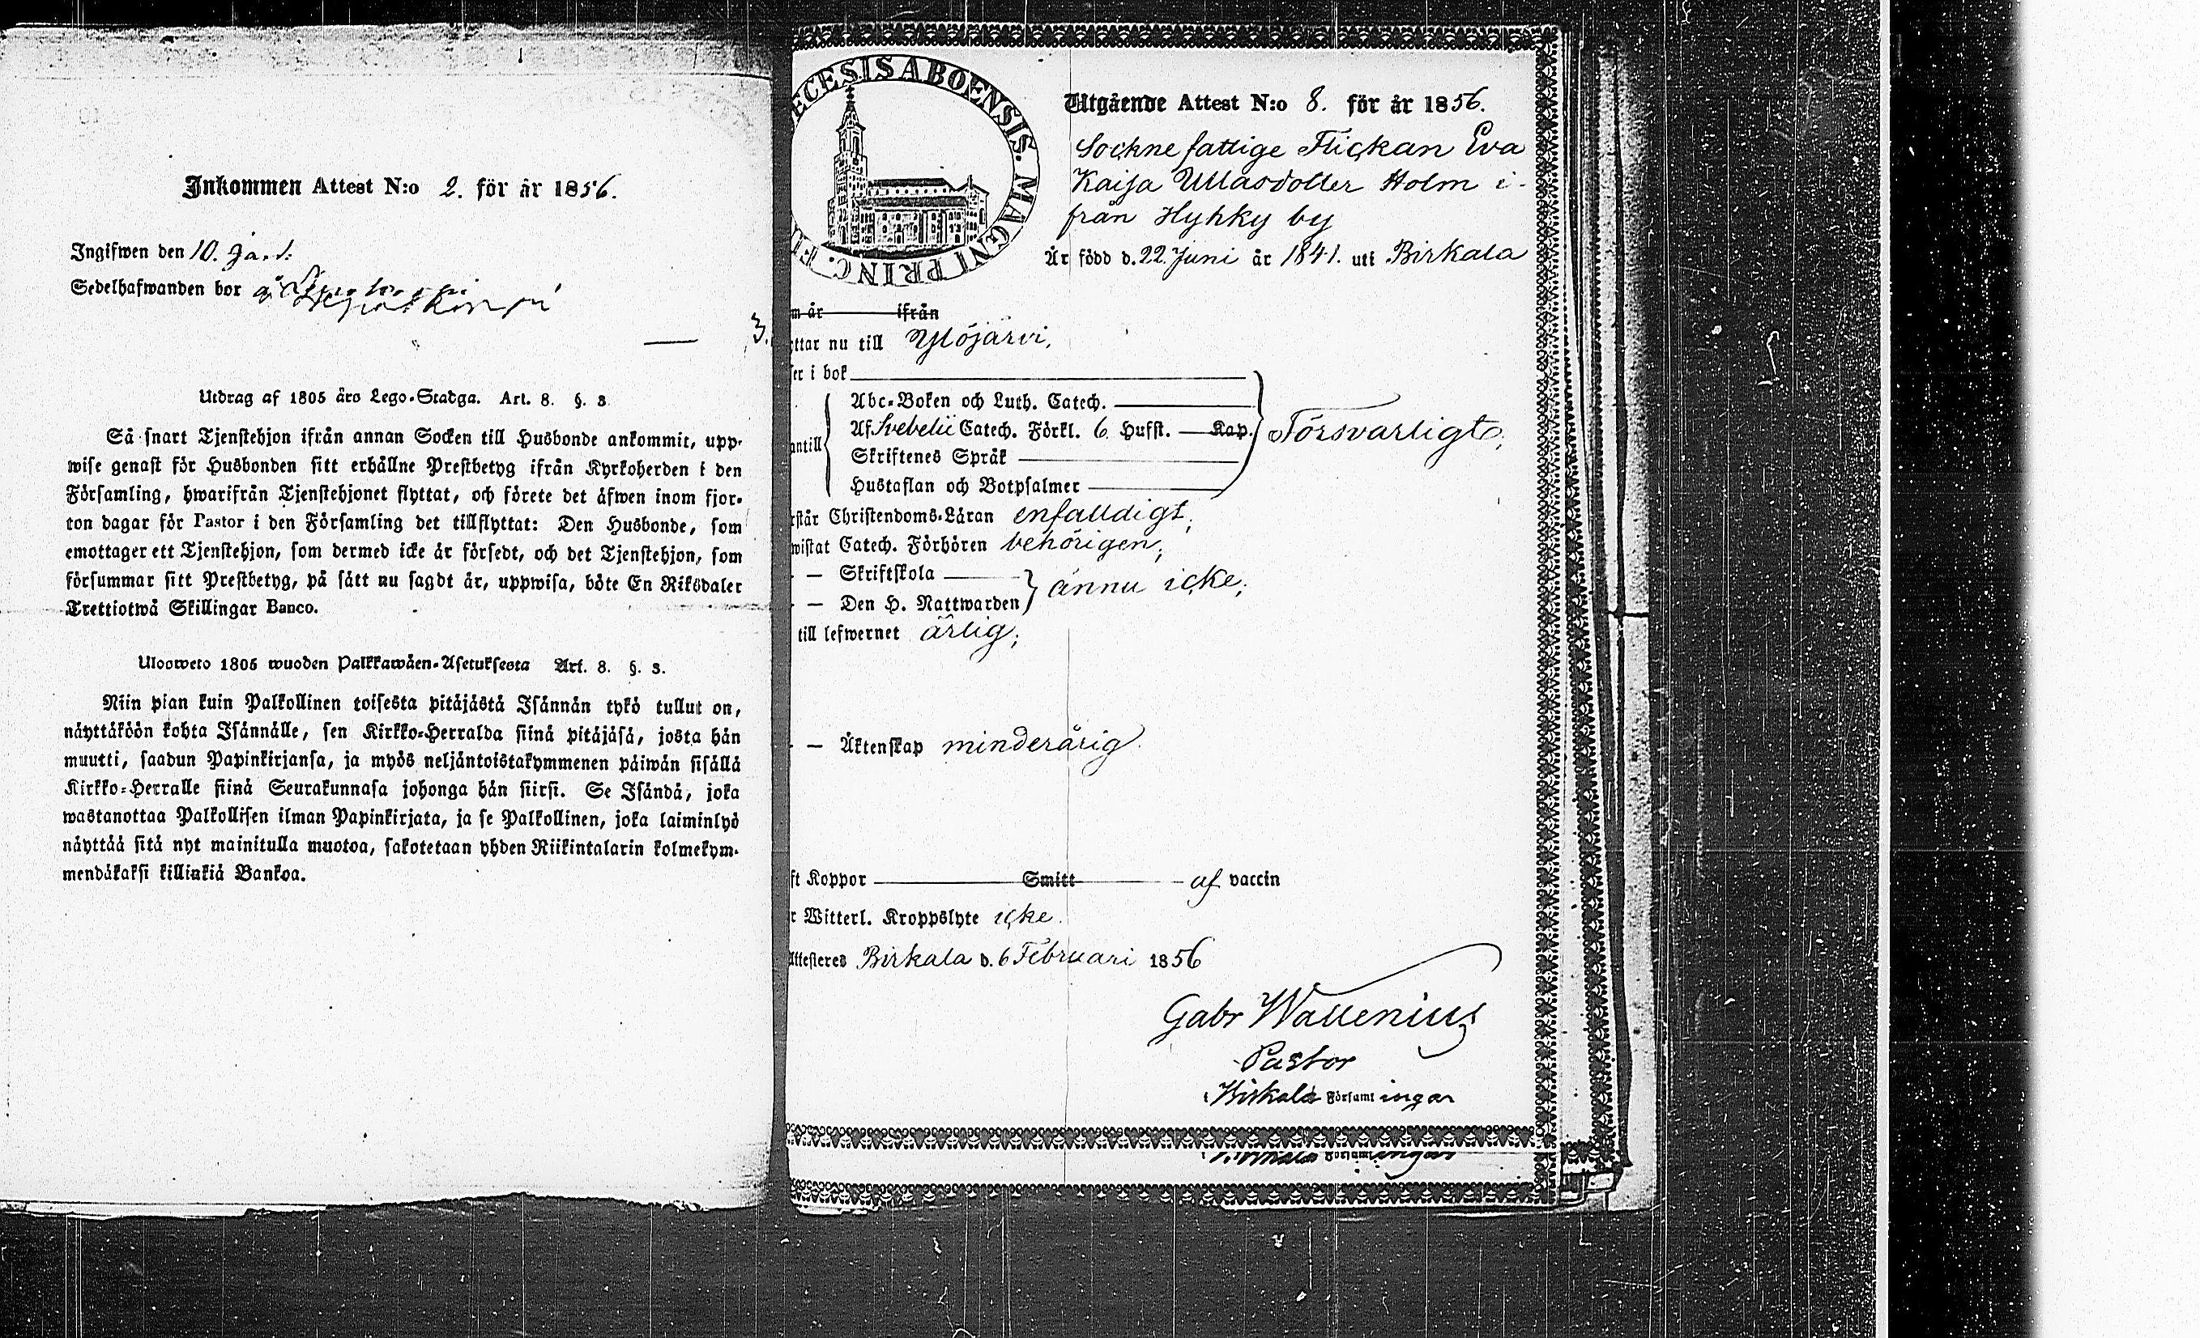 Inkommen Attest N:o 2. för år 1856.
Ingifwen den 10. Ja..l.
Sedelhafwanden bor å
3.
Utdrag af 1805 års Lego-Stadga. Art. 8. §. 3.
Så snart Tjenstehjon ifrån annan Socken till Husbonde ankommit, upp-
wise genast för Husbonden sitt erhållne Prestbetyg ifrån Kyrkoherden i den
Församling, hwarifrån Tjenstehjonet flyttat, och förete det åfwen inom fjor-
ton dagar för Pastor i den Församling det tillflyttat: Den Husbonde, som
emottager ett Tjenstehjon, som dermed icke är försedt, och det Tjenstehjon, som
försummar sitt Prestbetyg, på sätt nu sagdt är, uppwisa, böte En Riksdaler
Trettiotwå Skillingar Banco.
Ulosweto 1805 wuoden Palkkawäen-Asetuksesta Art. 8. §. 3.
Niin pian kuin Palkollinen toisesta pitäjästä Isännän tykö tullut on,
näyttäköön kohta Isännälle, sen Kirkko-Herralda siinä pitäjäsä, josta hän
muutti, saadun Papinkirjansa, ja myös neljäntoistakymmenen päiwän sisällä
Kirkko-Herralle siinä Seurakunnasa johonga hän siirsi. Se Isändä, joka
wastanottaa Palkollisen ilman Papinkirjata, ja se Palkollinen, joka laiminlyö
näyttää sitä nyt mainitulla muotoa, sakotetaan yhden Riikintalarin kolmekym-
mendäkaksi killinkiä Bankoa.
ECESIS ABOENSIS. MAGNI PRINC. FI
Utgående Attest N:o 8. för år 1856.
Sockne fattige Flickan Eva
Kaisa Ullasdotter Holm i-
från Hyhky by
Är född d. 22 Juni år 1841. uti Birkala
m år ifrån
ttar nu till Ylöjärvi,
ser i bok
Abc-Boken och Luth. Catech.
antill Af Svebelii Catech. Förkl. 6 Hufst. Kap. Försvarligt;
Skriftenes Språk
Hustaflan och Botpsalmer
rstår Christendoms-Läran enfalldigt;
wistat Catech. Förhören behörigen;
- — Skriftskola
- — Den H. Nattwarden ännu icke;
till lefwernet ärlig;
- — Äktenskap minderårig.
ft Koppor Smitt af vaccin
r Witterl. Kroppslyte icke.
Attesteres Birkala d. 6 Februari 1856
Gabr Wallenius
Pastor
i Birkala Församl ingar